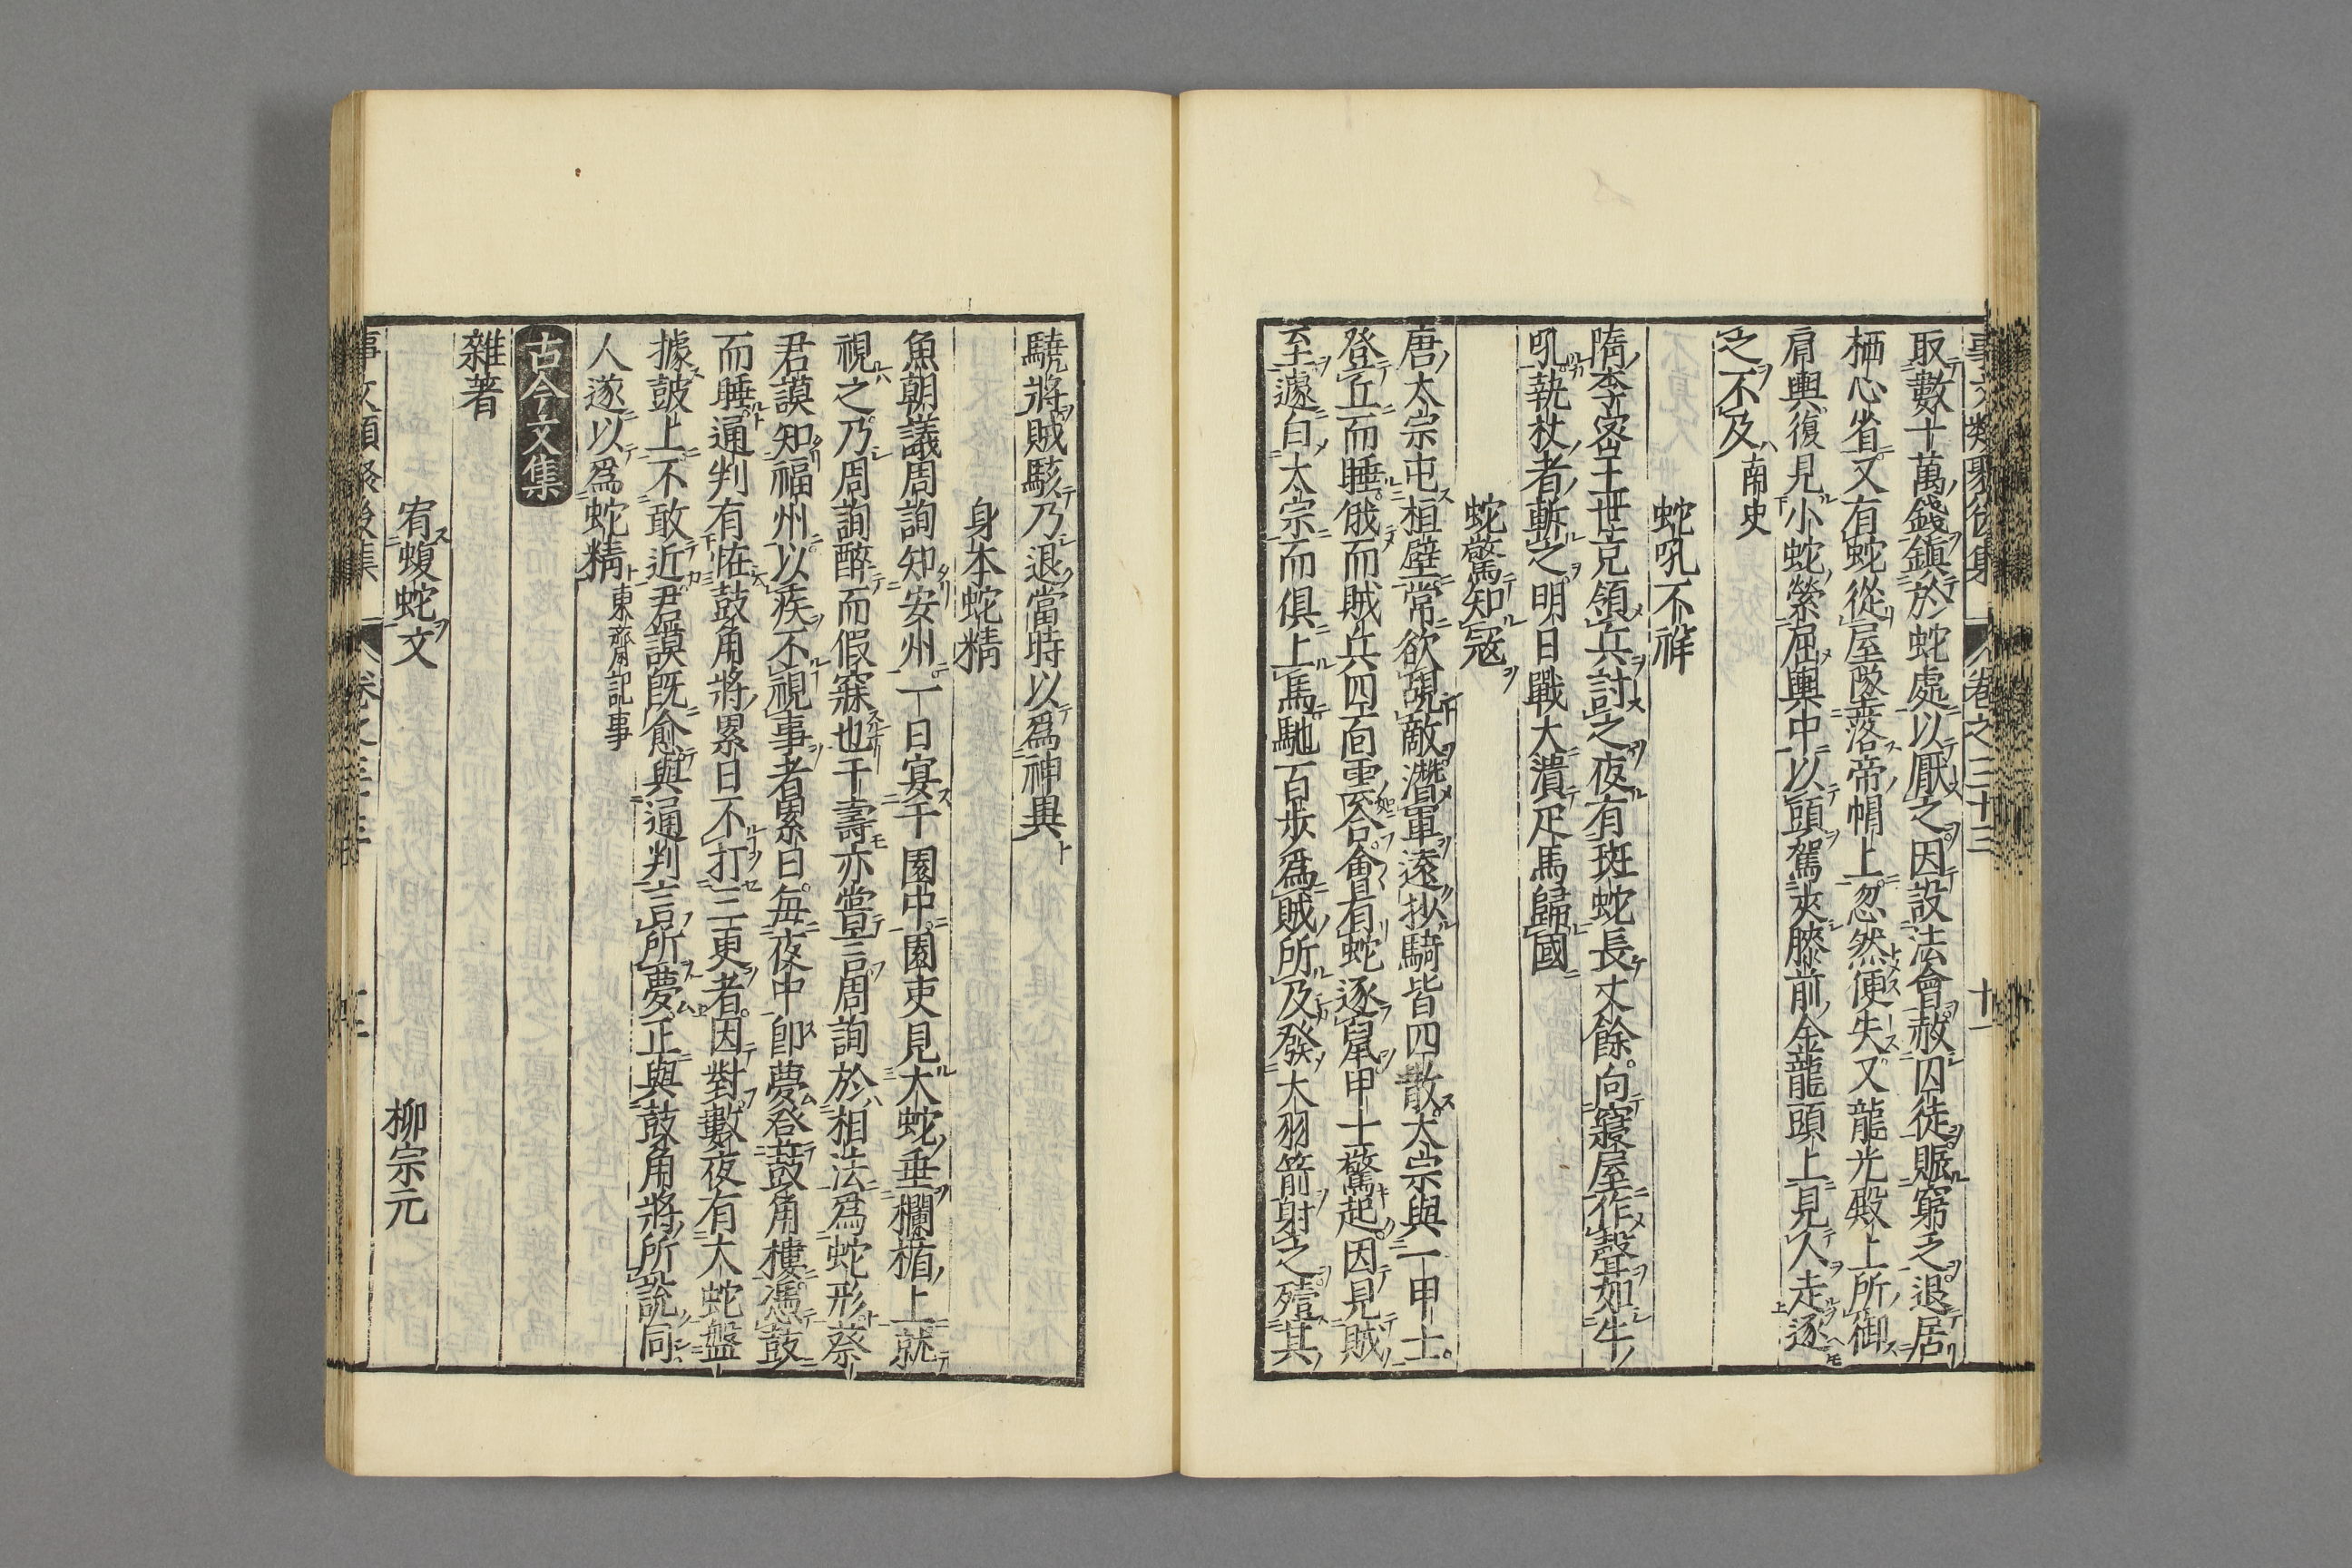 事文類聚後集 卷之三十三 十一
取數十萬錢鎮於蛇處以厭之因設法會赦囚徒賑窮乏退居
栖心省又有蛇從屋墜落帝帽上忽然便失又龍光殿上所御
肩輿復見小蛇縈屈輿中以頭駕夾膝前金龍頭上見人走逐
之不及南史
蛇吼不祥
隋李密王世充領兵討之夜有斑蛇長丈餘向寢屋作聲如牛
吼執杖者斬之明日戰大潰疋馬歸國
蛇驚知寇
唐太宗屯桓壁常欲覘敵潛軍遠抄騎皆四散大宗與一甲士
登丘而睡俄而賊兵四面雲合會有蛇逐鼠甲士驚起因見賊
至遽白太宗而俱上馬馳百步爲賊所及發大羽箭射之殪其
驍將賊駭乃退當時以爲神異
身本蛇精
魚朝議周詢知安州一日宴于園中園吏見大蛇垂欄楯上就
視之乃周詢醉而假寐也干壽亦嘗言周詢於相法爲蛇形蔡
君謨知福州以疾不視事者累日每夜中卽夢登鼓角樓憑鼓
而睡通判有恠鼓角將累日不打三更者因對數夜有大蛇盤
據鼓上不敢近君謨既愈與通判言所夢正與鼓角將所說同
人遂以爲蛇精東齋記事
古今文集
雜著
宥蝮蛇文 柳宗元
事文類聚後集 卷之三十三 十一